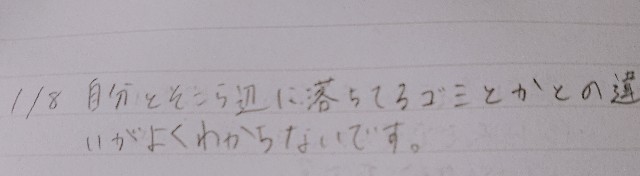 1/8 自分とそこら辺に落ちてるゴミとかとの違
いがよくわからないです。